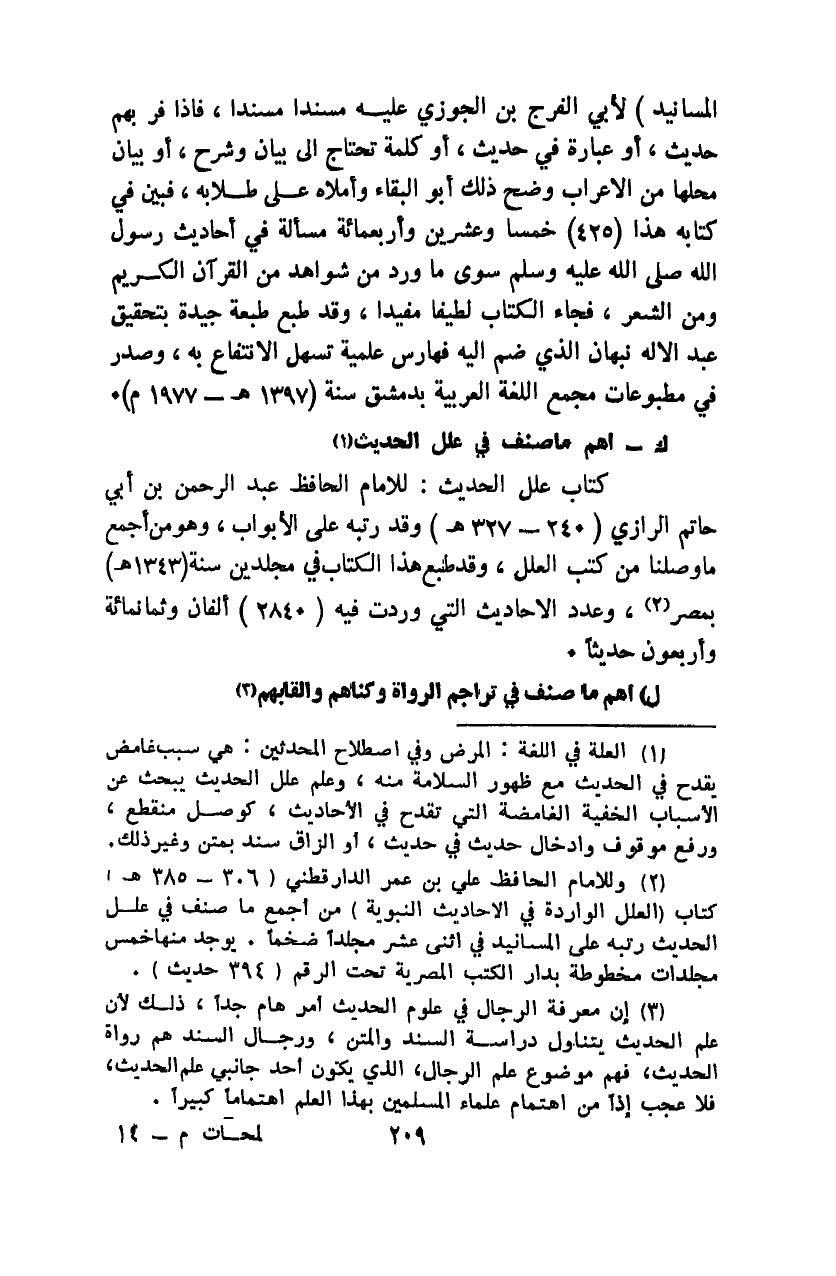 المسانيد ) لأبي الفرج بن الجوزي عليـــه مسندا مسندا ، فاذا فر بهم
حديث ، أو عبارة في حديث ، أو كلمة تحتاج الى بيان وشرح ، أو بيان
محلها من الاعراب وضح ذلك أبو البقاء وأملاه عـــلى طــلابه ، فبين في
كتابه هذا (٤٢٥) خمسا وعشرين وأربعمائة مسألة في أحاديث رسول
الله صلى الله عليه وسلم سوى ما ورد من شواهد من القرآن الكـــريم
ومن الشعر ، فجاء الكتاب لطيفا مفيدا ، وقد طبع طبعة جيدة بتحقيق
عبد الاله نبهان الذي ضم اليه فهارس علمية تسهل الانتفاع به ، وصدر
في مطبوعات مجمع اللغة العربية بدمشق سنة (١٣٩٧ هـ ـ ١٩٧٧ م)٠
ك ـ أهم ماصنف في علل الحديث(١)
كتاب علل الحديث : للامام الحافظ عبد الرحمن بن أبي
حاتم الرازي ( ٢٤٠ ـ ٣٢٧ هـ ) وقد رتبه على الأبواب ، وهومن أجمع
ماوصلنا من كتب العلل ، وقدطبع هذا الكتاب في مجلدين سنة(١٣٤٣هـ)
بمصر(٢) ، وعدد الاحاديث التي وردت فيه ( ٢٨٤٠ ) ألفان وثمانمائة
وأربعون حديثاً ٠
ل) أهم ما صنف في تراجم الرواة وكناهم والقابهم(٣)
(١) العلة في اللغة : المرض وفي اصطلاح المحدثين : هي سبب غامض
يقدح في الحديث مع ظهور السلامة منه ، وعلم علل الحديث يبحث عن
الأسباب الخفية الغامضة التي تقدح في الأحاديث ، كوصـــل منقطع ،
ورفع موقوف وادخال حديث في حديث ، أو الزاق سند بمتن وغيرذلك.
(٢) وللامام الحافظ علي بن عمر الدارقطني ( ٣٠٦ ـ ٣٨٥ هـ )
كتاب (العلل الواردة في الاحاديث النبوية ) من أجمع ما صنف في علــل
الحديث رتبه على المسانيد في اثنى عشر مجلداً ضخماً . يوجد منهاخمس
مجلدات مخطوطة بدار الكتب المصرية تحت الرقم ( ٣٩٤ حديث ) .
(٣) إن معرفة الرجال في علوم الحديث أمر هام جداً ، ذلــك لأن
علم الحديث يتناول دراســـة السند والمتن ، ورجـــال السند هم رواة
الحديث، فهم موضوع علم الرجال، الذي يكون أحد جانبي علم الحديث،
فلا عجب إذاً من اهتمام علماء المسلمين بهذا العلم اهتماماً كبيراً .
٢٠٩ لمحـات م ـ ١٤